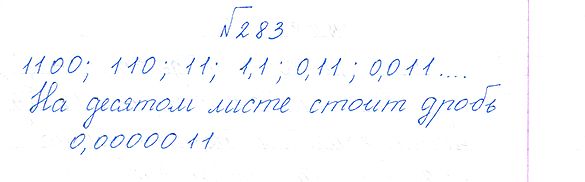 №283
1100; 110; 11; 1,1; 0,11; 0,011....
На десятом листе стоит дробь
0,0000011